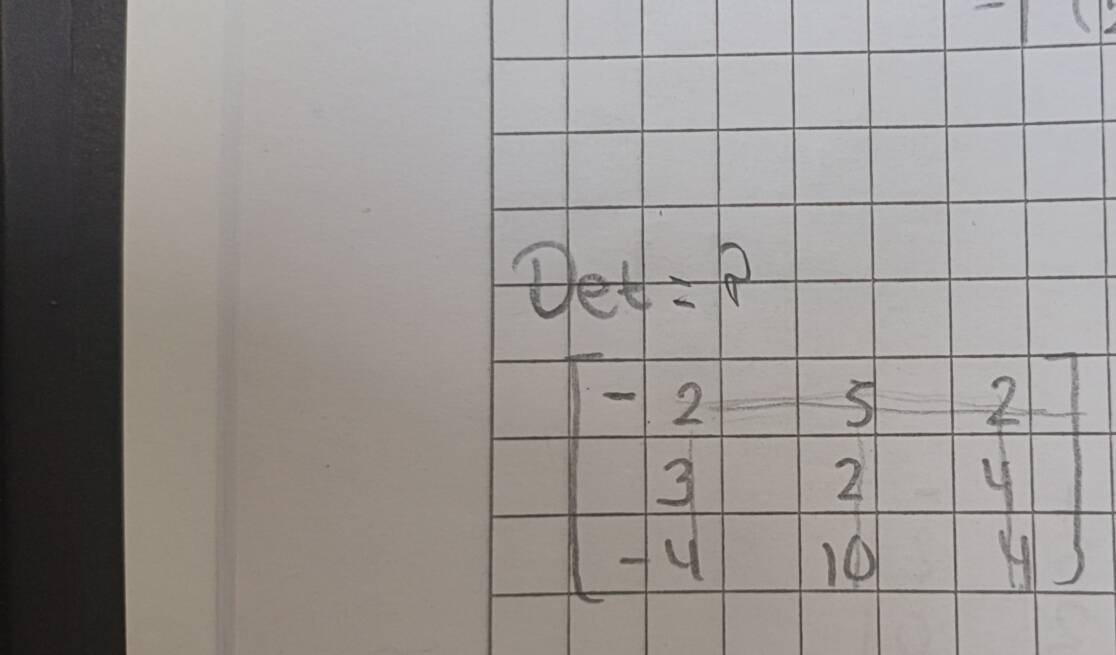 Det = ?
- 2 5 2
3 2 4
-4 10 4